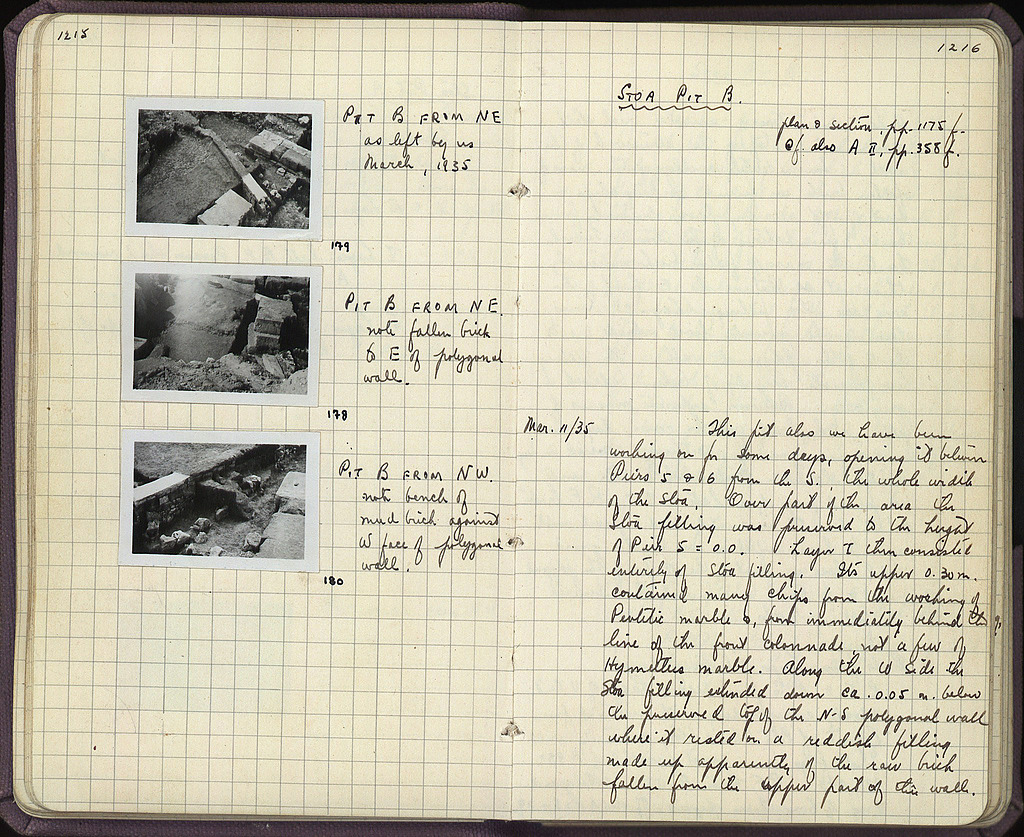 1215
PIT B FROM NE
as left by us
March, 1935
179
PIT B FROM NE.
note fallen brick
to E of polygonal
wall.
178
PIT B FROM NW.
note bench of
mud brick against
W face of polygonal
wall.
180
1216
STOA PIT B.
plan & section, pp. 1175 f.
Cf. also A II, pp. 358 f.
Mar. 11/35
This pit also we have been
working on for some days, opening it between
Piers 5 & 6 from the S. the whole width
of the Stoa. Over part of the area the
Stoa filling was preserved to the height
of Pier 5 = 0.0. Layer I then consisted
entirely of Stoa filling. Its upper 0.30 m.
contained many chips from the working of
Pentelic marble &, from immediately behind the
line of the front colonnade, not a few of
Hymettus marble. Along the W side the
Stoa filling extended down ca. 0.05 m. below
the preserved top of the N-S polygonal wall
where it rested on a reddish filling
made up apparently of the raw brick
fallen from the upper part of this wall.